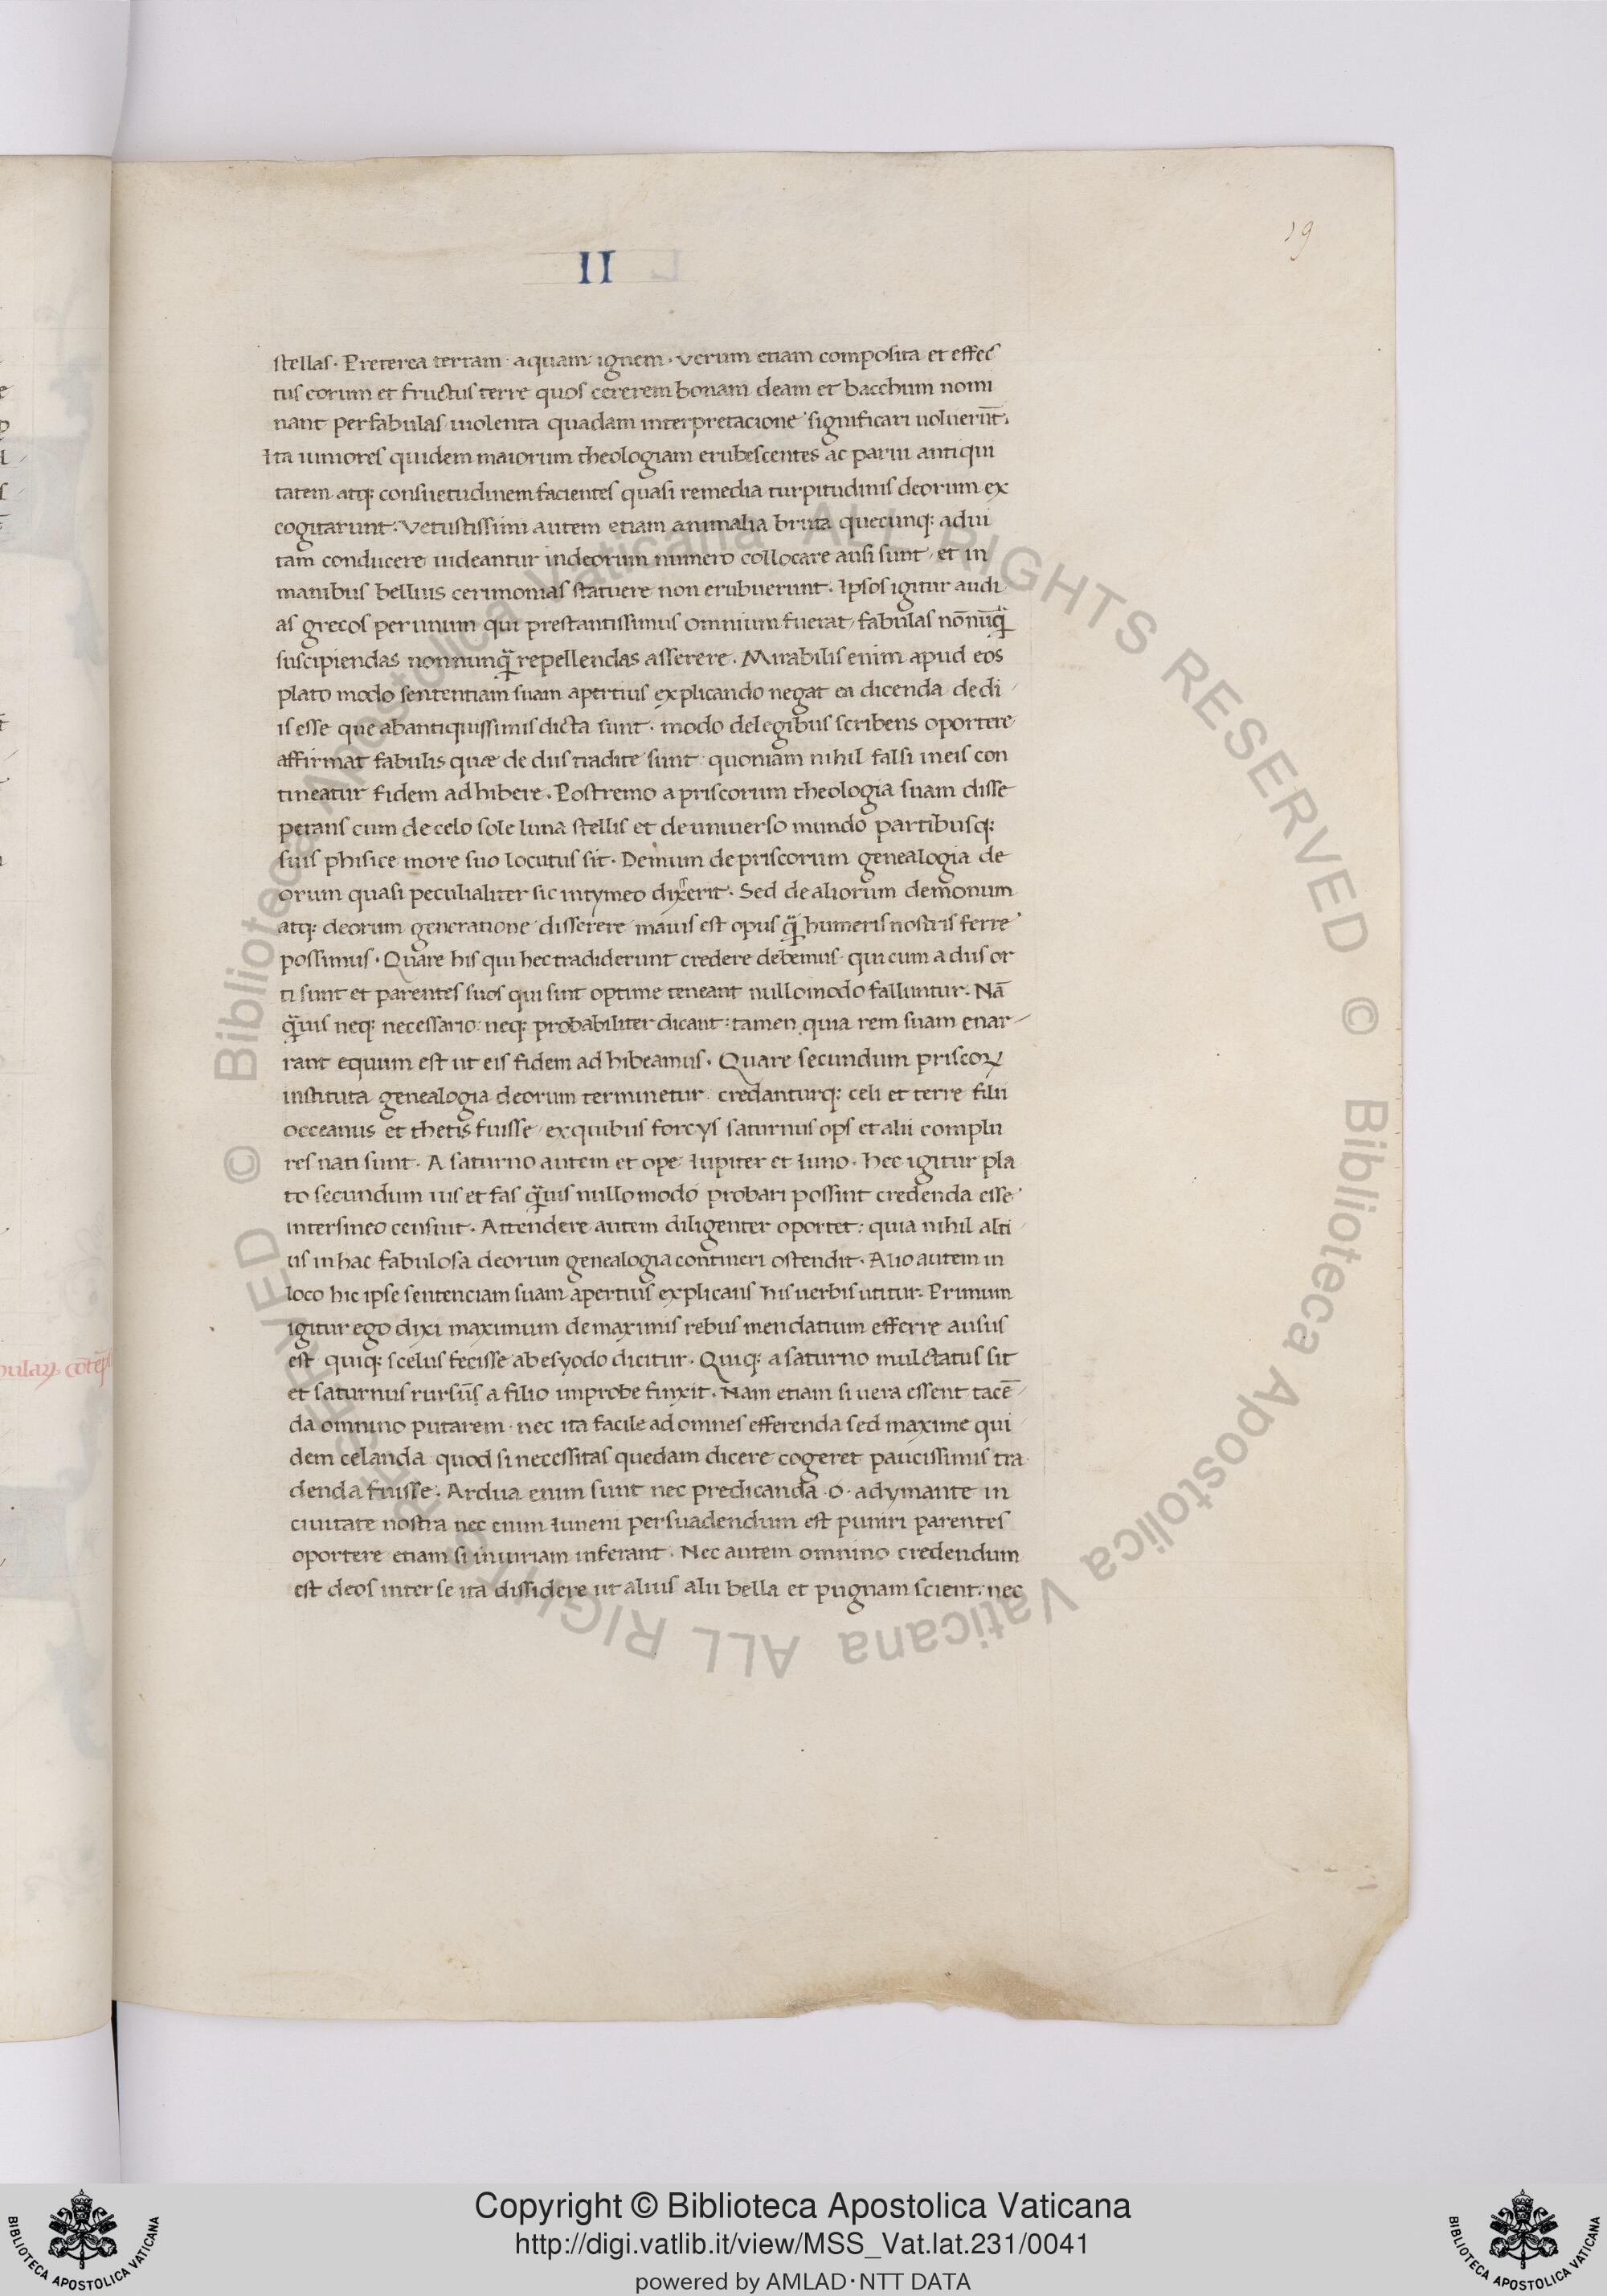 II
19
stellas. Preterea terram aquam ignem. verum etiam composita et effec
tus eorum et fructus terre quos cererem bonam deam et bacchum nomi
nant per fabulas uiolenta quadam interpretacione significari uoluerūt.
Ita iuniores quidem maiorum theologiam erubescentes ac parui antiqui
tatem atq; consuetudinem facientes quasi remedia turpitudinis deorum ex
cogitarunt. Vetustissimi autem etiam animalia bruta quecunq; ad ui
tam conducere uideantur in deorum numero collocare ausi sunt et in
manibus belluis cerimonias statuere non erubuerunt. Ipsos igitur audi
as grecos per unum qui prestantissimus omnium fuerat fabulas nōnūq̄
suscipiendas nonnunq̄ repellendas asserere. Mirabilis enim apud eos
plato modo sententiam suam apertius explicando negat ea dicenda de di
is esse que ab antiquissimis dicta sunt. modo de legibus scribens oportere
affirmat fabulis quæ de diis tradite sunt: quoniam nihil falsi in eis con
tineatur fidem adhibere. Postremo a priscorum theologia suam disse
perans cum de celo sole luna stellis et de uniuerso mundo partibusq;
suis phisice more suo locutus sit. Demum de priscorum genealogia de
orum quasi peculialiter sic in tymeo dixerit. Sed de aliorum demonum
atq; deorum generatione disserere maius est opus q̄ humeris nostris ferre
possimus. Quare his qui hec tradiderunt credere debemus qui cum a diis or
ti sunt et parentes suos qui sint optime teneant nullo modo falluntur. Nā
q̄uis neq; necessario: neq; probabiliter dicant: tamen quia rem suam enar
rant equum est ut eis fidem adhibeamus. Quare secundum priscoꝝ
instituta genealogia deorum terminetur credanturq; celi et terre filii
occeanus et thetis fuisse ex quibus forcys saturnus ops et alii complu
res nati sunt. A saturno autem et ope Iupiter et Iuno. hec igitur pla
to secundum ius et fas q̄uis nullo modo probari possint credenda esse
intersineo censuit. Attendere autem diligenter oportet: quia nihil alti
us in hac fabulosa deorum genealogia contineri ostendit. Alio autem in
loco hic ipse sentenciam suam apertius explicans his uerbis utitur. Primum
igitur ego dixi maximum de maximis rebus mendatium efferre ausus
est quiq; scelus fecisse ab esyodo dicitur. Quiq; a saturno mulctatus sit
et saturnus rursus̄ a filio improbe finxit. Nam etiam si uera essent tacē
da omnino putarem nec ita facile ad omnes efferenda sed maxime qui
dem celanda quod si necessitas quedam dicere cogeret paucissimis tra
denda fuisse. Ardua enim sunt nec predicanda o adymante in
ciuitate nostra nec enim Iuueni persuadendum est puniri parentes
oportere etiam si iniuriam inferant. Nec autem omnino credendum
est deos inter se ita dissidere ut alius alii bella et pugnam scient: nec
© Biblioteca Apostolica Vaticana ALL RIGHTS RESERVED
© Biblioteca Apostolica Vaticana ALL RIGHTS RESERVED
Copyright © Biblioteca Apostolica Vaticana
http://digi.vatlib.it/view/MSS_Vat.lat.231/0041
powered by AMLAD·NTT DATA
BIBLIOTECA APOSTOLICA VATICANA
BIBLIOTECA APOSTOLICA VATICANA